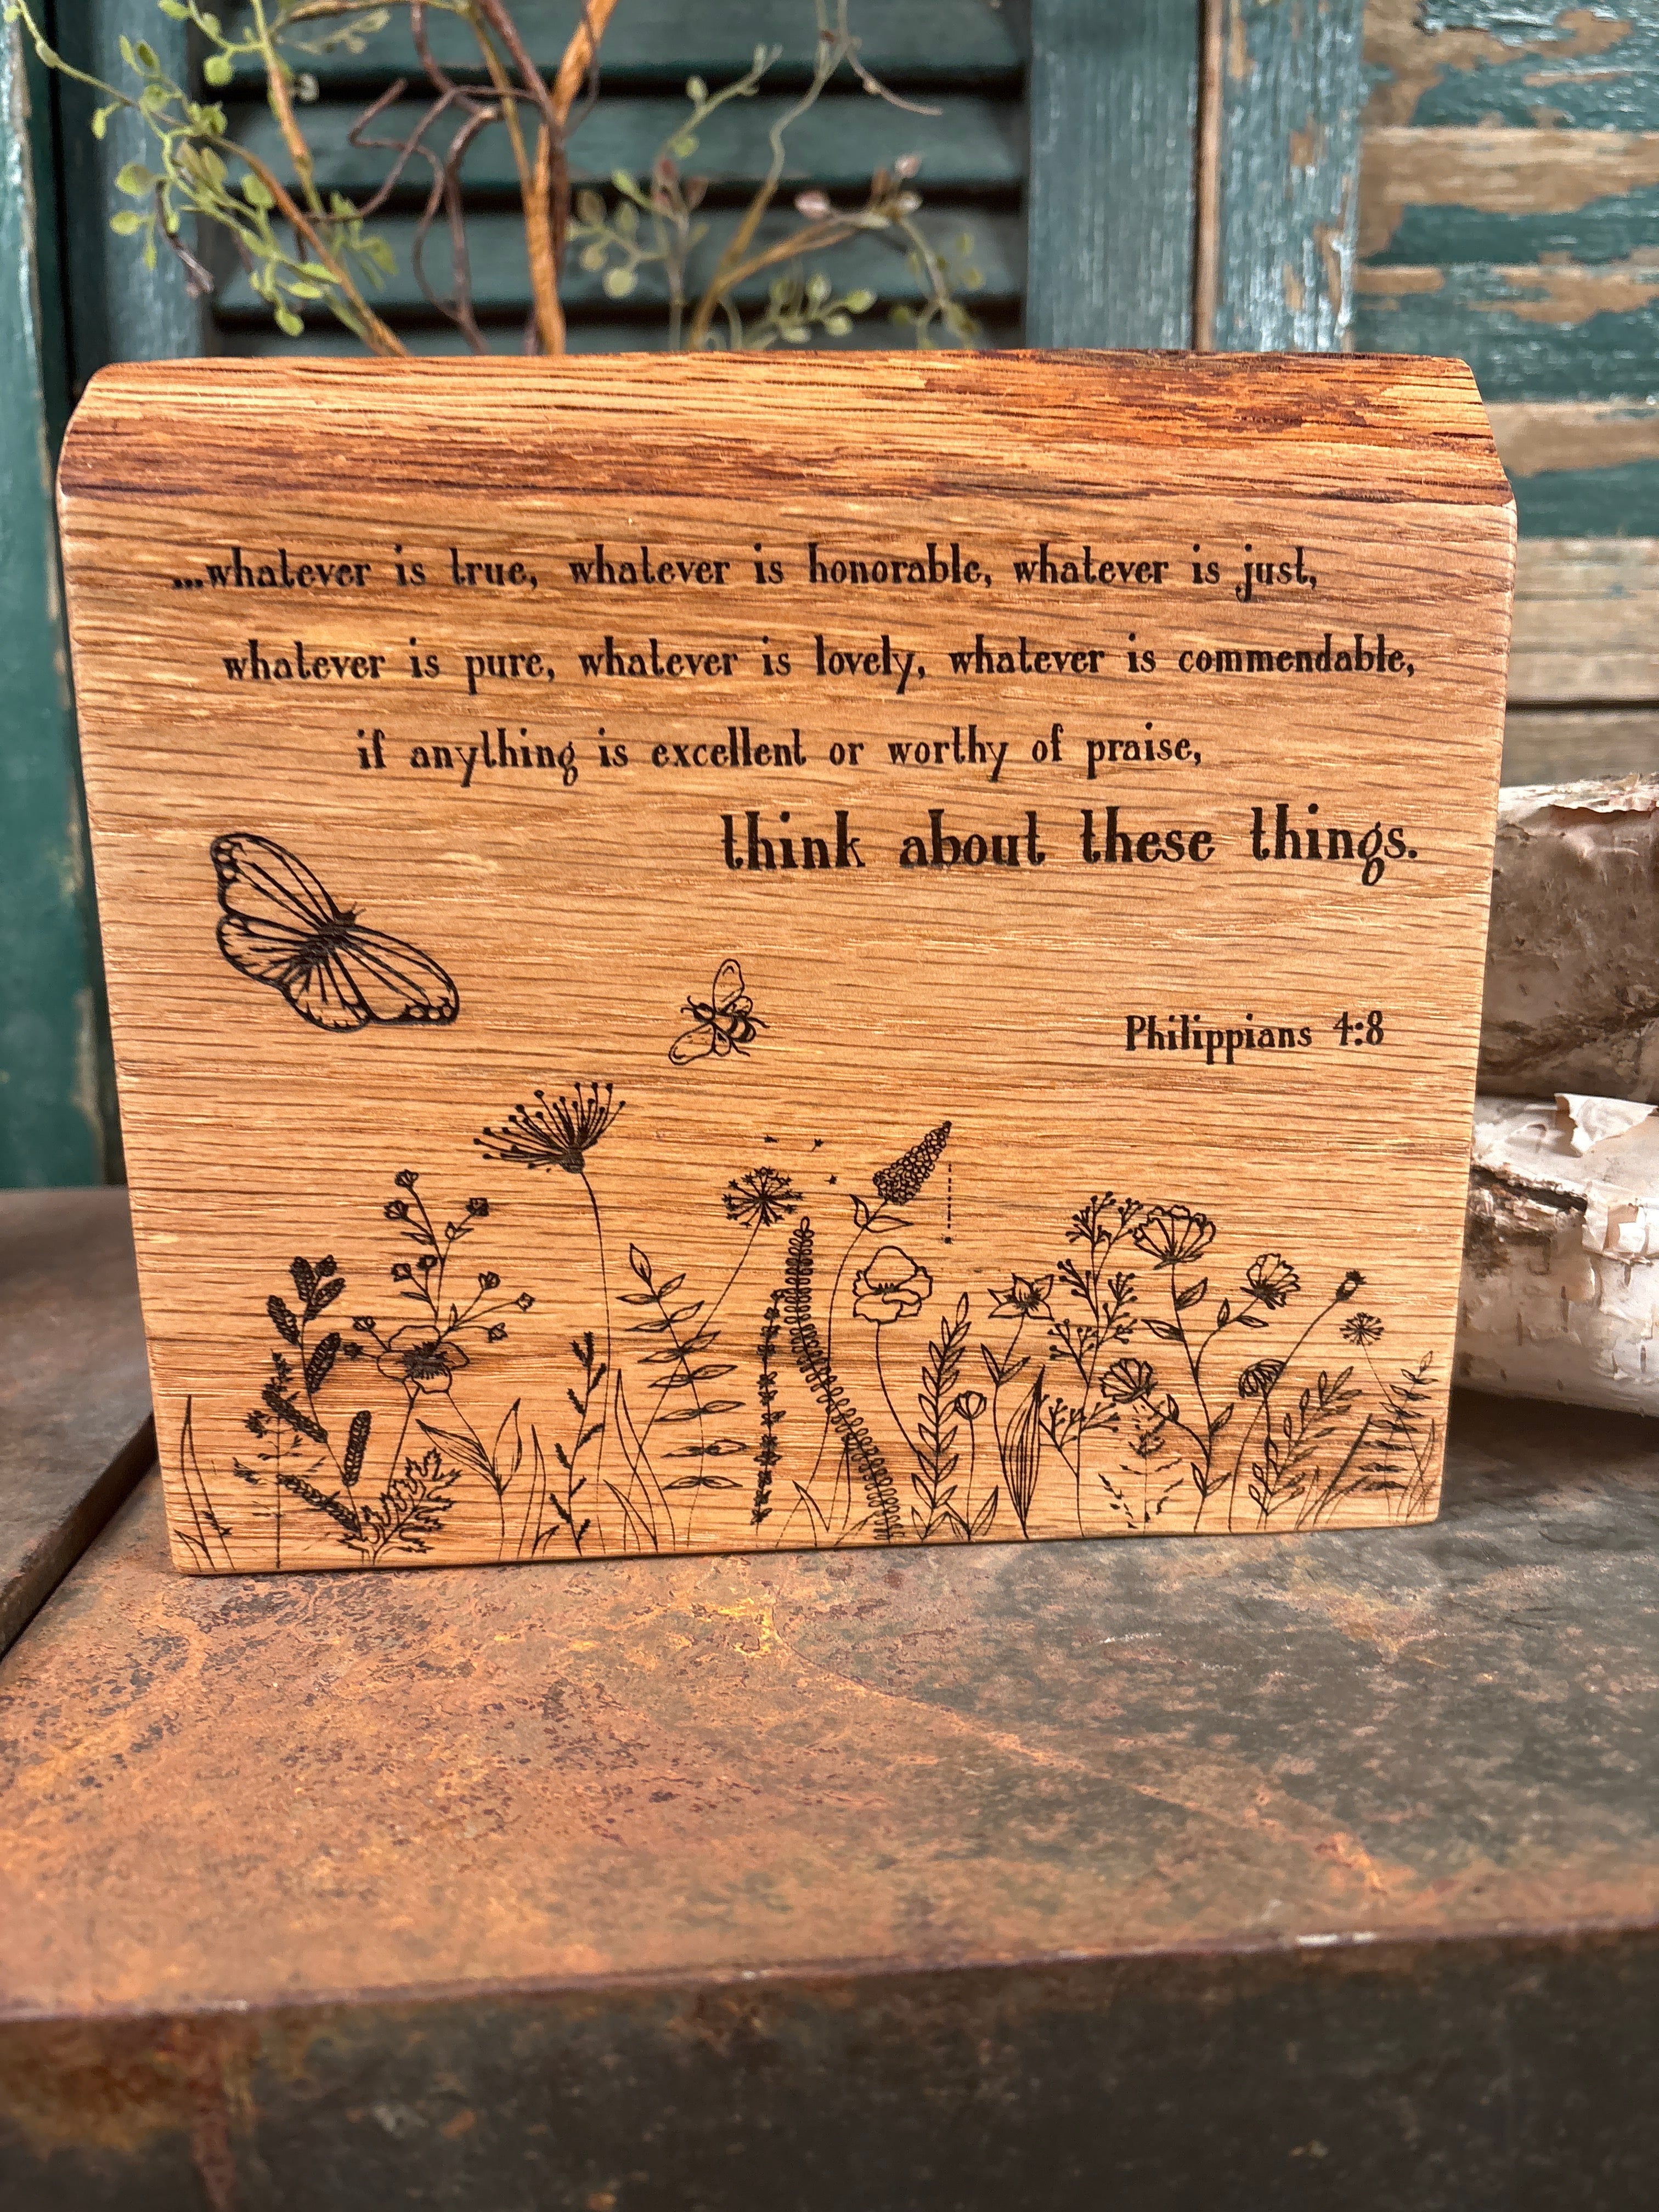 ...whatever is true, whatever is honorable, whatever is just,
whatever is pure, whatever is lovely, whatever is commendable,
if anything is excellent or worthy of praise,
think about these things.
Philippians 4:8